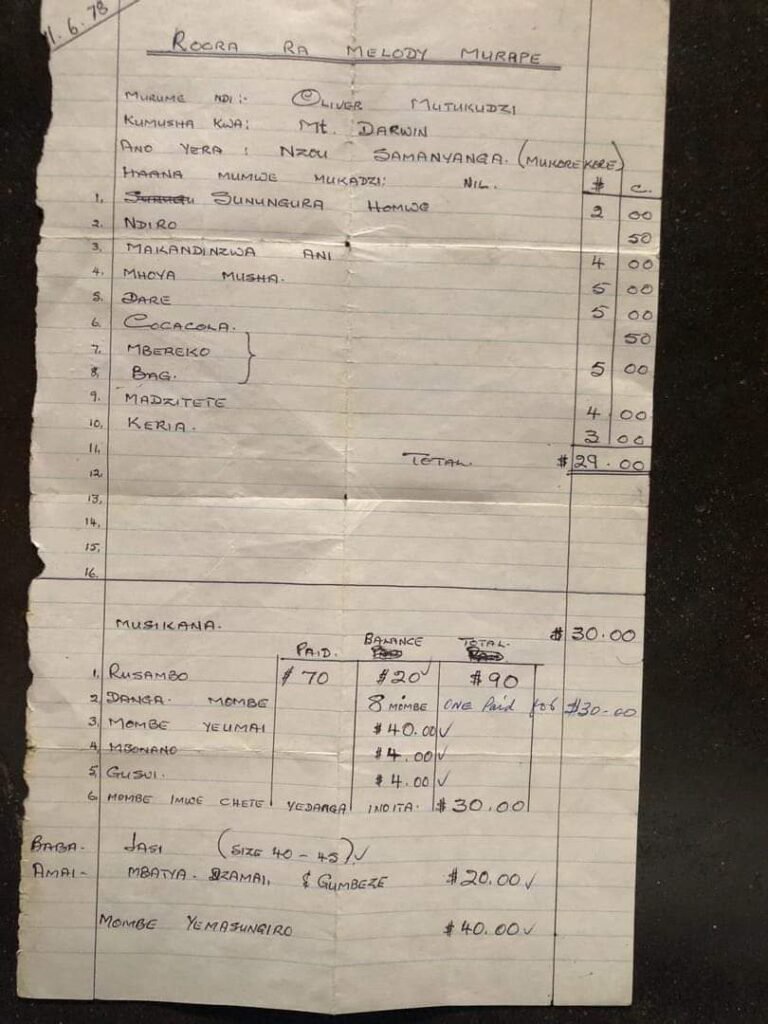 1.6.78
ROORA RA MELODY MURAPE
MURUME NDI:- OLIVER MUTUKUDZI
KUMUSHA KWA: Mt. DARWIN
ANO YERA: NZOU SAMANYANGA. (MUKOREKORE)
HAANA MUMWE MUKADZI: NIL. $ C.
1. SUNUNGURA HOMWE 2 00
2. NDIRO 50
3. MAKANDINZWA ANI 4 00
4. MHOYA MUSHA. 5 00
5. DARE 5 00
6. COCACOLA. 50
7. MBEREKO
8. BAG. 5 00
9. MADZITETE 4 00
10. KERIA. 3 00
11. TOTAL. $29.00
12.
13.
14.
15.
16.
MUSIKANA. $30.00
PAID. BALANCE TOTAL.
1. RUSAMBO $70 $20✓ $90
2. DANGA. MOMBE 8 MOMBE ONE Paid for $30-00
3. MOMBE YEUMAI $40.00✓
4. MBONANO $4.00✓
5. GUSVI. $4.00✓
6. MOMBE IMWE CHETE YEDANGA INOITA. $30.00
BABA- JASI (SIZE 40-45)✓
AMAI- MBATYA. DZAMAI, & GUMBEZE $20.00✓
MOMBE YEMASUNGIRO $40.00✓